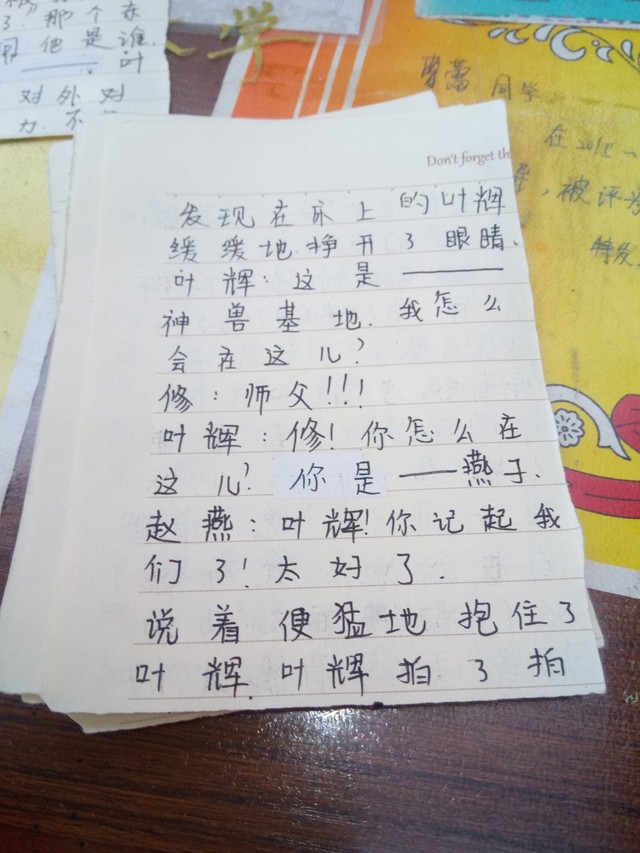 了.那个亦
他是谁.
———.叶
对外对
力.不
学
同学
在
，被评为
特发
Don't forget th
发现在床上的叶辉
缓缓地挣开了眼睛.
叶辉：这是———
神兽基地.我怎么
会在这儿？
修：师父!!!
叶辉：修!你怎么在
这儿？你是——燕子.
赵燕：叶辉!你记起我
们了!太好了.
说着便猛地抱住了
叶辉.叶辉拍了拍